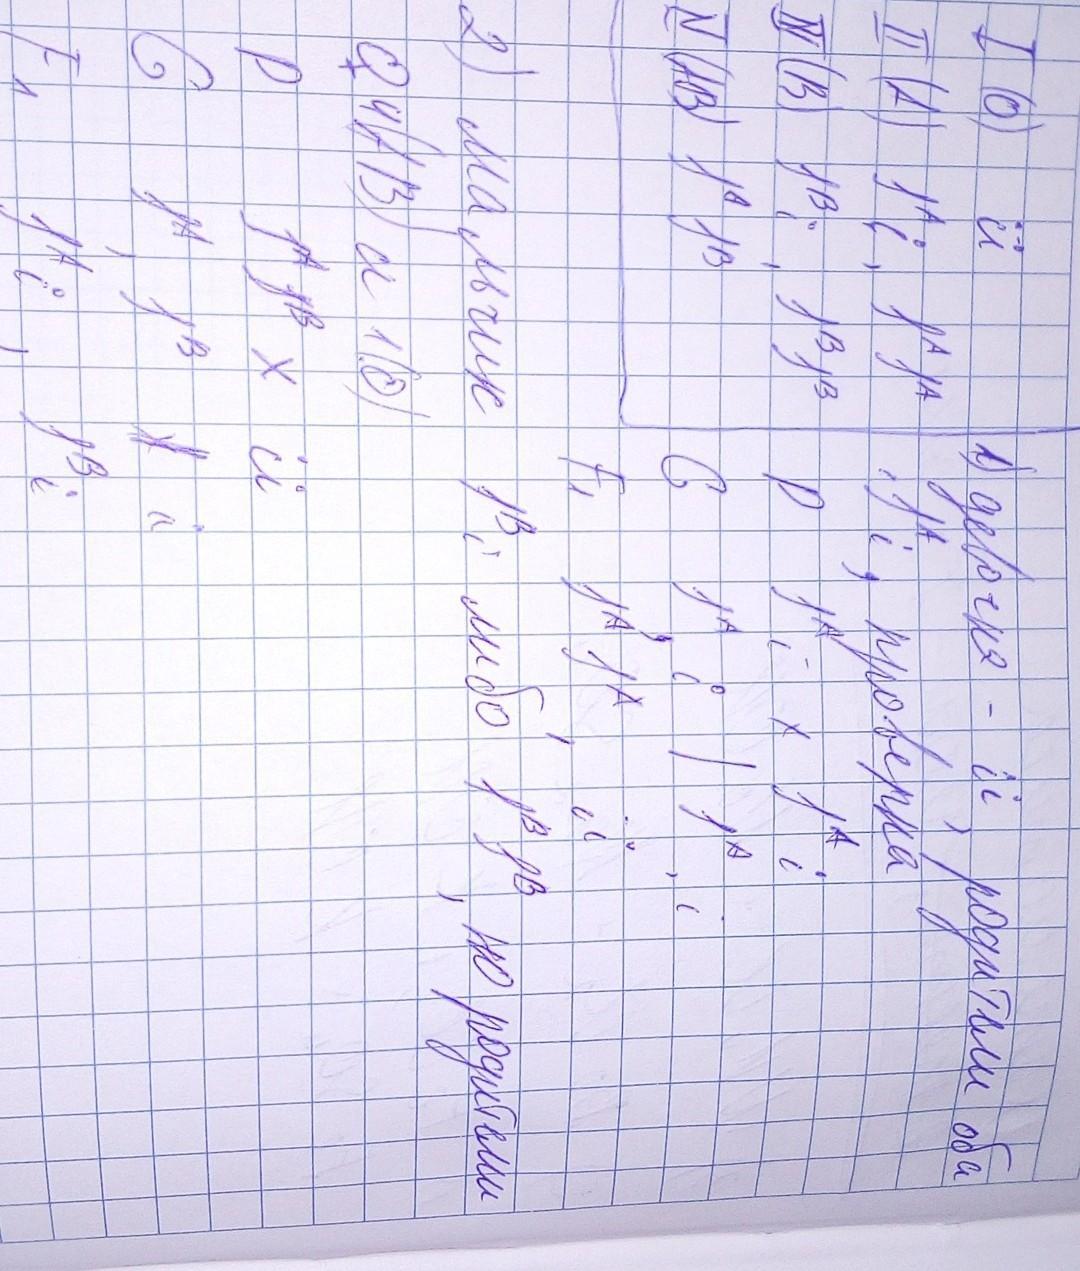 I (0) ii
II (A) jᴬi, jᴬjᴬ
III (B) jᴮi, jᴮjᴮ
IV (AB) jᴬ jᴮ
1) девочка - ii, родители оба
jᴬi, проверка
P jᴬi x jᴬi
G jᴬ, i | jᴬ, i
F₁ jᴬjᴬ, ii
2) мальчик jᴮi либо jᴮjᴮ, но родители
♀ 4(AB) и 1(0)
P jᴬjᴮ x ii
G jᴬ, jᴮ i
F₁ jᴬi, jᴮi